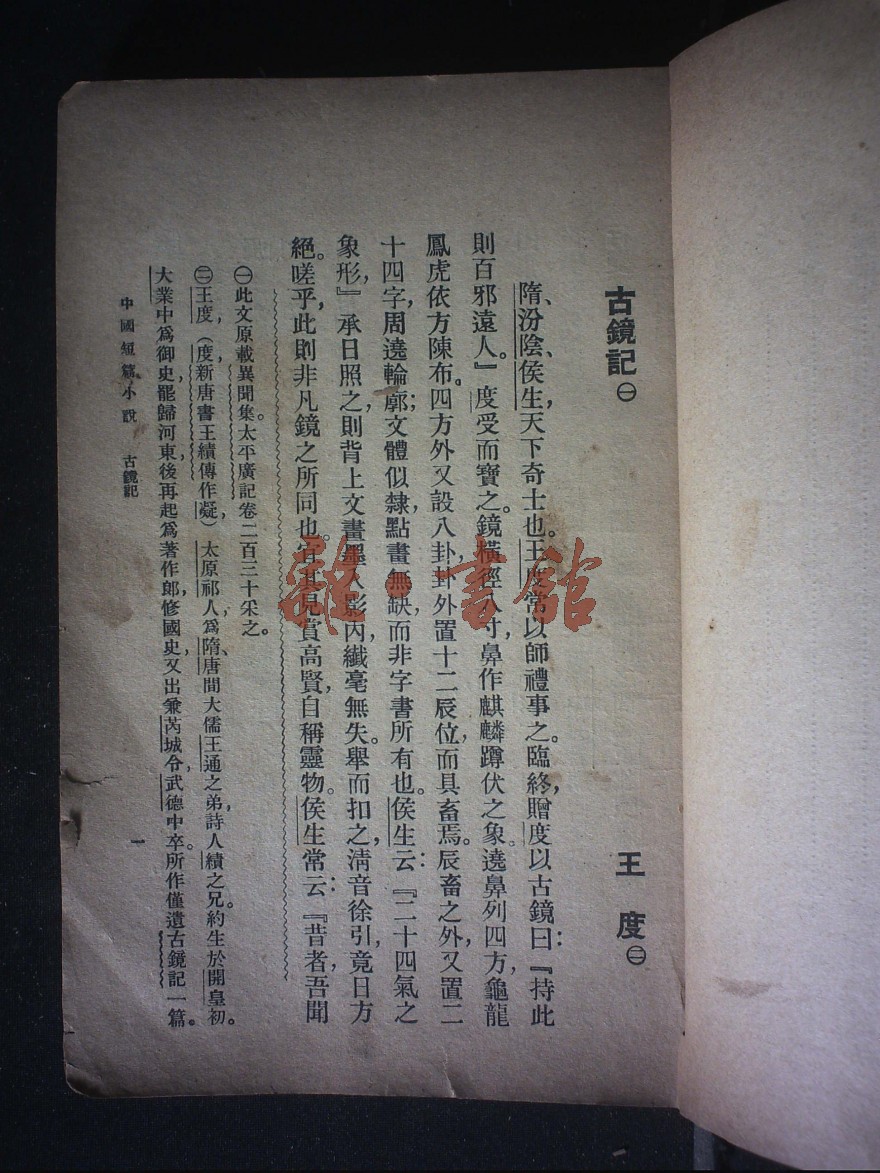 古鏡記㊀
王度㊁
隋、汾陰、侯生，天下奇士也。王度常以師禮事之。臨終，贈度以古鏡曰：『持此
則百邪遠人。』度受而寶之。鏡橫徑八寸，鼻作麒麟蹲伏之象。遶鼻列四方，龜龍
鳳虎依方陳布。四方外又設八卦，卦外置十二辰位，而具畜焉。辰畜之外，又置二
十四字，周遶輪廓；文體似隸，點畫無缺，而非字書所有也。侯生云：『二十四氣之
象形』承日照之，則背上文畫，墨入影內，纖毫無失。舉而扣之，清音徐引，竟日方
絕。嗟乎，此則非凡鏡之所同也。宜其見賞高賢，自稱靈物。侯生常云：『昔者，吾聞
㊀此文原載異聞集。太平廣記卷二百三十采之。
㊁王度，（度，新唐書王績傳作凝，）太原祁人，爲隋、唐間大儒王通之弟，詩人績之兄。約生於開皇初。
大業中爲御史，罷歸河東，後再起爲著作郎，修國史，又出兼芮城令，武德中卒。所作僅遺古鏡記一篇。
中國短篇小說　古鏡記
一
雜·書館